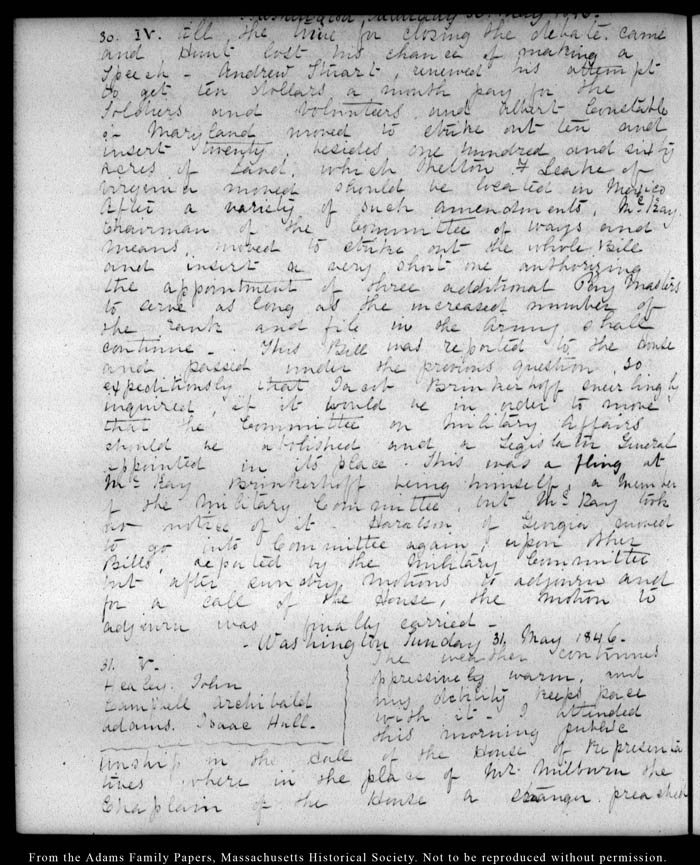 Washington, Saturday 30. May 1846.
30. IV. till the time for closing the debate came
and Hunt lost his chance of making a
Speech - Andrew Stuart, renewed his attempt
to get ten dollars a month pay for the
Soldiers and Volunteers and Albert Constable
of Maryland moved to strike out ten and
insert twenty, besides one hundred and sixty
acres of Land, which Shelton F Leake of
Virginia moved should be located in Mexico
After a variety of such amendments, McKay
Chairman of the Committee of Ways and
Means, moved to strike out the whole Bill
and insert a very short one authorizing
the appointment of three additional Pay Masters
to serve as long as the increased number of
the rank and file in the Army shall
continue - This Bill was reported to the House
and passed under the previous question, so
expeditiously that Jacob Brinkerhoff sneeringly
inquired, if it would be in order to move
that the Committee on Military Affairs
should be abolished and a Legislator General
appointed in its place. This was a fling at
McKay Brinkerhoff being himself, a member
of the Military Committee, but McKay took
no notice of it - Haralson of Georgia moved
to go into Committee again, upon other
Bills, reported by the Military Committee
but after sundry motions to adjourn and
for a call of the House, the motion to
adjourn was finally carried -
- Washington Sunday 31. May 1846 -
31. V.
Healey. John
Campbell Archibald
Adams. Isaac Hull -
The weather continues
oppressively warm, and
my debility keeps pace
with it - I attended
this morning public
worship in the Hall of the House of Representa
tives where in the place of Mr. Milburn the
Chaplain of the House a stranger preached
From the Adams Family Papers, Massachusetts Historical Society. Not to be reproduced without permission.